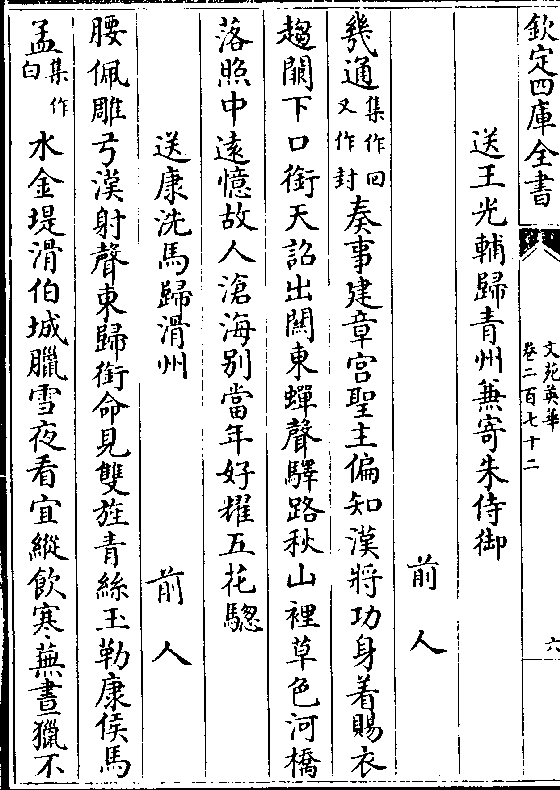 欽定四庫全書
文苑英華
卷二百七十二
六
送王光輔歸青州兼寄朱侍御
前人
幾通集作回又作封奏事建章宮聖主偏知漢將功身着賜衣
趨闕下口銜天詔出關東蟬聲驛路秋山裡草色河橋
落照中遠憶故人滄海别當年好耀五花驄
送康洗馬歸滑州
前人
腰佩雕弓漢射聲東歸銜命見雙旌青絲玉勒康侯馬
孟集作白水金堤滑伯城臘雪夜看宜縱飲寒蕪晝獵不